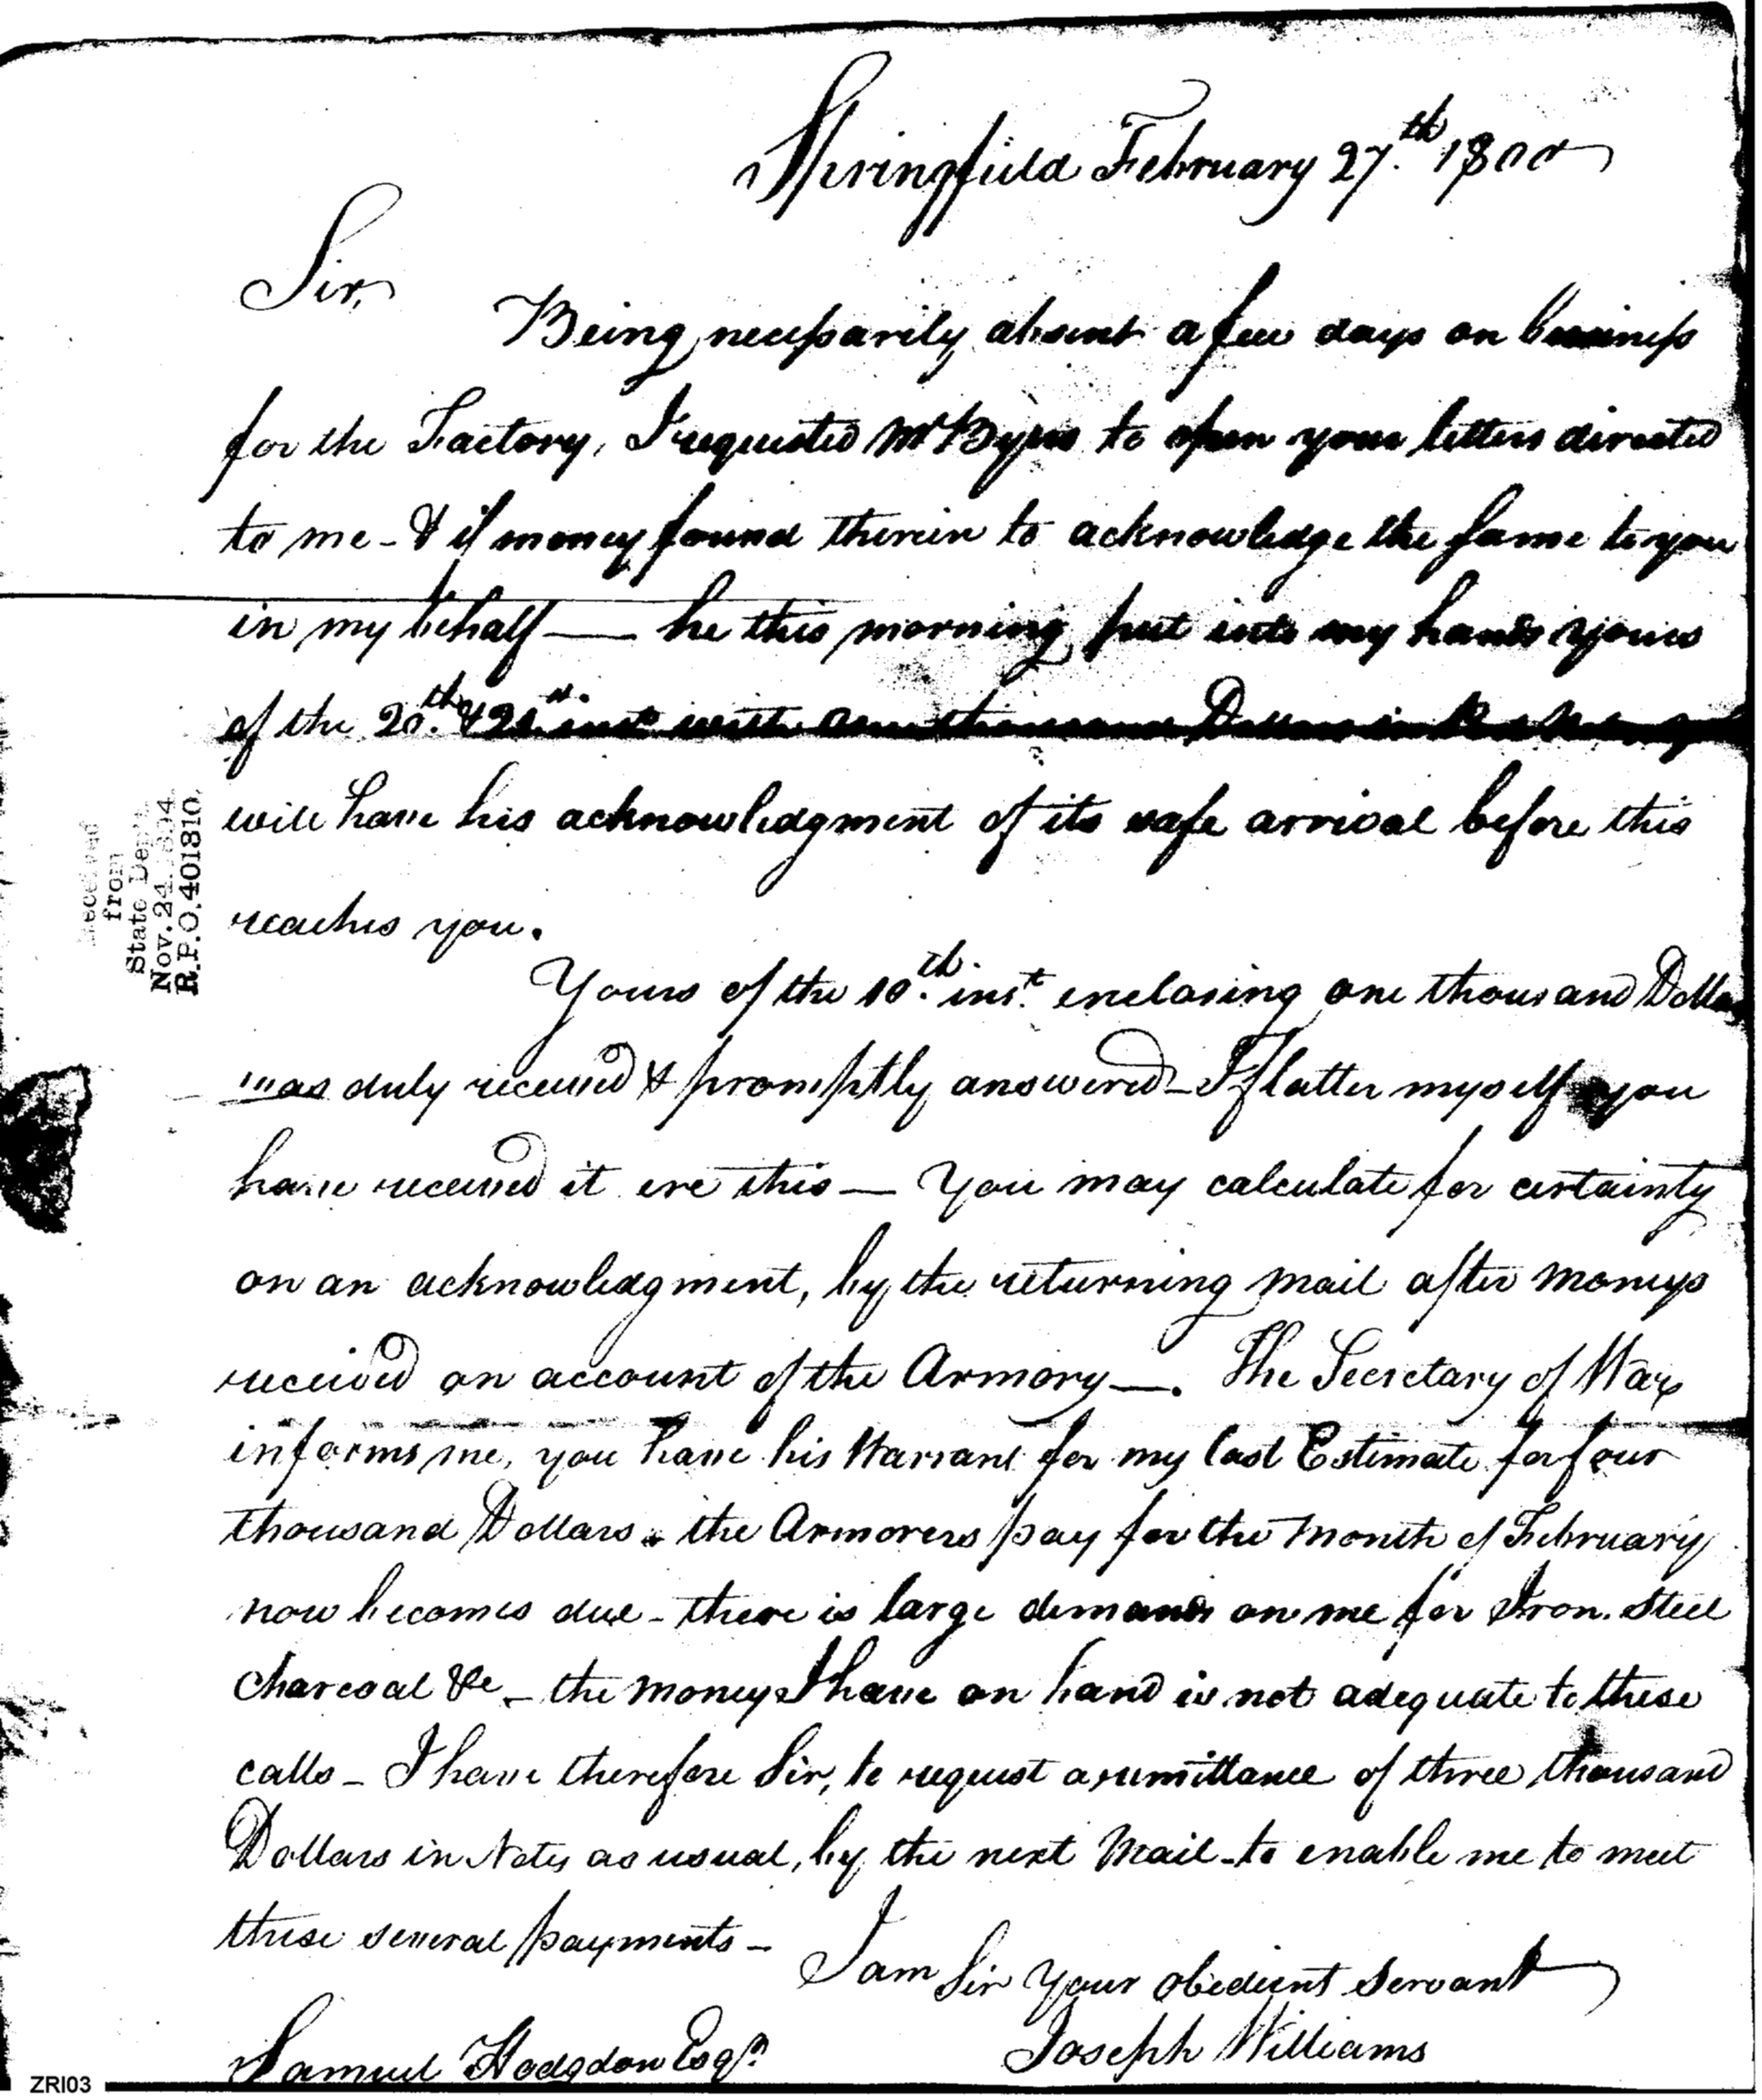 Springfield February 27.th 1800
Sir,
Being necessarily absent a few days on business
for the Factory, I requested Mr Byers to open your letters directed
to me - & if money found therein to acknowledge the same to you
in my behalf — he this morning put into my hands yours
of the 20.th & 21.st inst with one thousand Dollars in
will have his acknowledgment of its safe arrival before this
reaches you.
Yours of the 10.th inst. enclosing one thousand Dollars
was duly received & promptly answered - I flatter myself you
have received it ere this — You may calculate for certainty
on an acknowledgment, by the returning mail after moneys
received on account of the Armory —. The Secretary of War
informs me, you have his Warrant for my last Estimate for four
thousand Dollars. the Armorers pay for the Month of February
now becomes due - there is large demands on me for Iron. Steel
Charcoal &c - the money I have on hand is not adequate to these
calls - I have therefore Sir, to request a remittance of three thousand
Dollars in Notes as usual, by the next Mail - to enable me to meet
these several payments -
I am Sir Your obedient Servant
Joseph Williams
Samuel Hodgdon Esqr.
Received
from
State Dep't.
Nov. 24. 1894.
R.P.O. 401810.
ZRI03